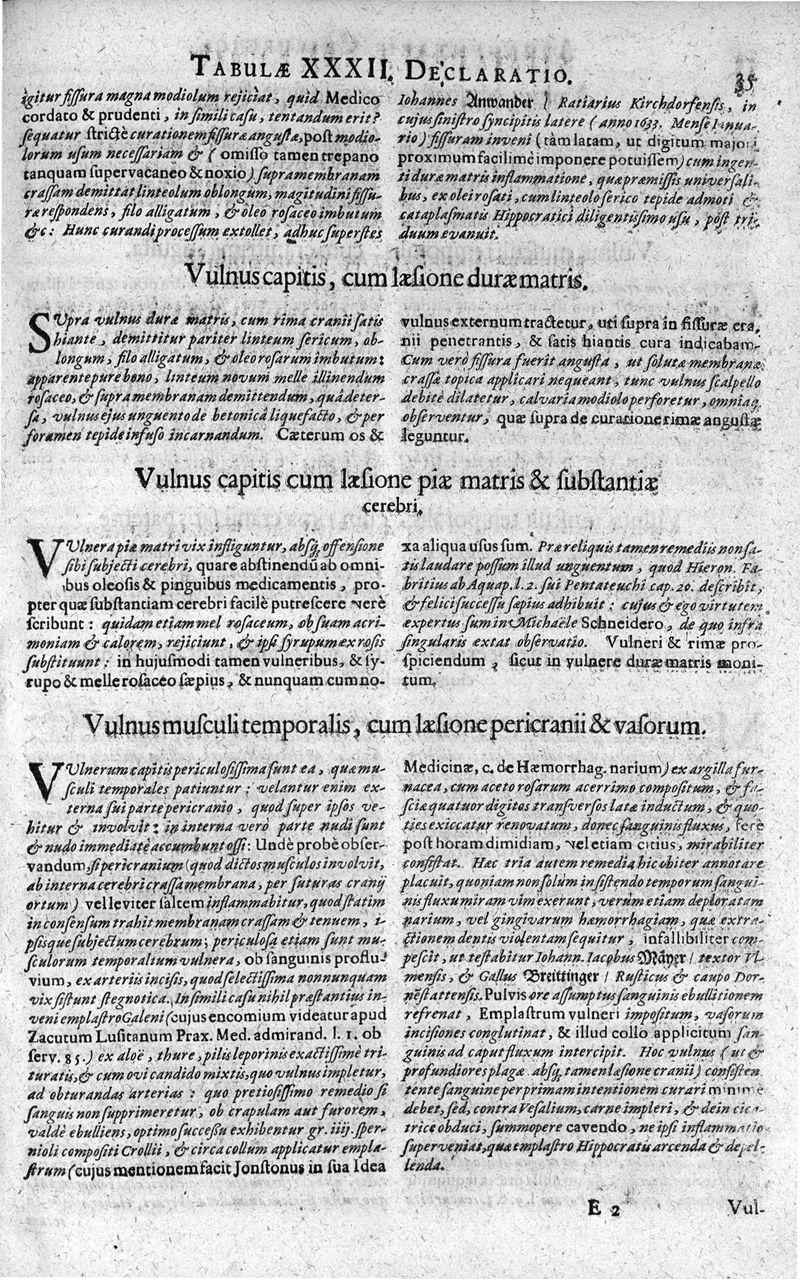 TABULÆ XXXII. DECLARATIO.
35
igitur fissura magna modiolum rejiciat, quid Medico
cordato & prudenti, in simili casu, tentandum erit?
sequatur strictè curationem fissuræ angustæ, post modio-
lorum usum necessariam & (omisso tamen trepano
tanquam supervacaneo & noxio) supra membranam
crassam demittat linteolum oblongum, magitudini fissu-
ræ respondens, filo alligatum, & oleo rosaceo imbutum
&c: Hunc curandi processum extollet, adhuc superstes
Iohannes Anwander / Ratiarius Kirchdorfensis, in
cujus sinistro syncipitis latere (anno 1633. Mense Ianua-
rio) fissuram inveni (tàm latam, ut digitum majori
proximum facilimè imponere potuissem) cum ingen-
ti duræ matris inflammatione, quæ præmissis universali-
bus, ex olei rosati, cum linteolo serico tepide admoti &
cataplasmatis Hippocratici diligentissimo usu, post tri-
duum evanuit.
Vulnus capitis, cum læsione duræ matris.
SUpra vulnus duræ matris, cum rima cranii satis
hiante, demittitur pariter linteum sericum, ob-
longum, filo alligatum, & oleo rosarum imbutum:
apparente pure bono, linteum novum melle illinendum
rosaceo, & supra membranam demittendum, quâ deter-
sa, vulnus ejus unguento de betonicâ liquefacto, & per
foramen tepide infuso incarnandum. Cæterum os &
vulnus externum tractetur, uti supra in fissuræ cra-
nii penetrantis, & satis hiantis cura indicabam.
Cum verò fissura fuerit angusta, ut solutæ membranæ
crassæ topica applicari nequeant, tunc vulnus scalpello
debitè dilatetur, calvaria modiolo perforetur, omniaq;
observentur, quæ supra de curatione rimæ angustæ
leguntur.
Vulnus capitis cum læsione piæ matris & substantiæ
cerebri.
VUlnera piæ matri vix infliguntur, absq; offensione
sibi subjecti cerebri, quare abstinendū ab omni-
bus oleosis & pinguibus medicamentis, pro-
pter quæ substantiam cerebri facilè putrescere verè
scribunt: quidam etiam mel rosaceum, ob suam acri-
moniam & calorem, rejiciunt, & ipsi syrupum ex rosis
substituunt: in hujusmodi tamen vulneribus, & sy-
rupo & melle rosaceo sæpius, & nunquam cum no-
xa aliqua usus sum. Præ reliquis tamen remediis non sa-
tis laudare possum illud unguentum, quod Hieron. Fa-
britius ab Aquap. l. 2. sui Pentateuchi cap. 20. describit,
& felici successu sæpius adhibuit: cujus & ego virtutem
expertus sum in Michaële Schneidero, de quo infra
singularis extat observatio. Vulneri & rimæ pro-
spiciendum, sicut in vulnere duræ matris moni-
tum.
Vulnus musculi temporalis, cum læsione pericranii & vasorum.
VUlnerum capitis periculosissima sunt ea, quæ mu-
sculi temporales patiuntur: velantur enim ex-
terna sui parte pericranio, quod super ipsos ve-
hitur & involvit: in interna verò parte nudi sunt
& nudo immediatè accumbunt ossi: Undè probè obser-
vandum, si pericranium (quod dictos musculos involvit,
ab interna cerebri crassa membrana, per suturas cranij
ortum) vel leviter saltem inflammabitur, quod statim
in consensum trahit membranam crassam & tenuem, i-
psisque subjectum cerebrum; periculosa etiam sunt mu-
sculorum temporalium vulnera, ob sanguinis proflu-
vium, ex arteriis incisis, quod selectissima nonnunquam
vix sistunt stegnotica. In simili casu nihil præstantius in-
veni emplastro Galeni (cujus encomium videatur apud
Zacutum Lusitanum Prax. Med. admirand. l. 1. ob
serv. 85.) ex aloë, thure, pilis leporinis exactissimè tri-
turatis, & cum ovi candido mixtis, quo vulnus impletur,
ad obturandas arterias: quo pretiosissimo remedio si
sanguis non supprimeretur, ob crapulam aut furorem,
valdè ebulliens, optimo successu exhibentur gr. iiij. sper-
nioli compositi Crollii, & circa collum applicatur empla-
strum (cujus mentionem facit Jonstonus in sua Idea
Medicinæ, c. de Hæmorrhag. narium) ex argilla fur-
nacea, cum aceto rosarum acerrimo compositum, & fa-
sciæ quatuor digitos transversos latæ inductum, & quo-
ties exiccatur renovatum, donec sanguinis fluxus, ferè
post horam dimidiam, vel etiam citius, mirabiliter
consistat. Hæc tria autem remedia hic obiter annotare
placuit, quoniam non solùm in sistendo temporum sangui-
nis fluxu miram vim exerunt, verum etiam deploratam
narium, vel gingivarum hæmorrhagiam, quæ extra-
ctionem dentis violentam sequitur, infallibiliter com-
pescit, ut testabitur Iohann. Iacobus Mäyer / textor Vl-
mensis, & Gallus Breittinger / Rusticus & caupo Dor-
nestattensis. Pulvis ore assumptus sanguinis ebullitionem
refrenat, Emplastrum vulneri impositum, vasorum
incisiones conglutinat, & illud collo applicitum san-
guinis ad caput fluxum intercipit. Hoc vulnus (ut &
profundiores plagæ absq; tamen læsione cranii) consisten-
te sanguine per primam intentionem curari minimè
debet, sed, contra Vesalium, carne impleri, & dein cica-
trice obduci, summopere cavendo, ne ipsi inflammatio
superveniat, quæ emplastro Hippocratis arcenda & depel-
lenda.
E 2
Vul-